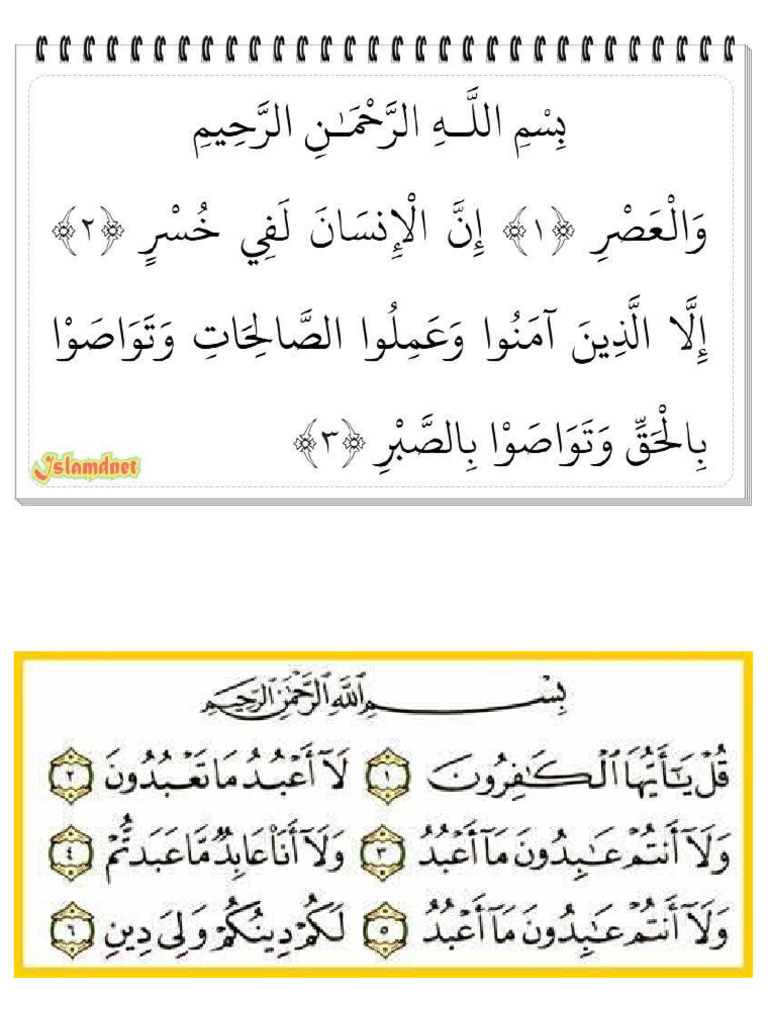 بِسْمِ اللَّـهِ الرَّحْمَـٰنِ الرَّحِيمِ
وَالْعَصْرِ ﴿١﴾ إِنَّ الْإِنسَانَ لَفِي خُسْرٍ ﴿٢﴾
إِلَّا الَّذِينَ آمَنُوا وَعَمِلُوا الصَّالِحَاتِ وَتَوَاصَوْا
بِالْحَقِّ وَتَوَاصَوْا بِالصَّبْرِ ﴿٣﴾
Islamdnet
بِسْمِ ٱللَّهِ ٱلرَّحْمَٰنِ ٱلرَّحِيمِ
قُلْ يَٰٓأَيُّهَا ٱلْكَٰفِرُونَ ١ لَآ أَعْبُدُ مَا تَعْبُدُونَ ٢
وَلَآ أَنتُمْ عَٰبِدُونَ مَآ أَعْبُدُ ٣ وَلَآ أَنَا۠ عَابِدٌ مَّا عَبَدتُّمْ ٤
وَلَآ أَنتُمْ عَٰبِدُونَ مَآ أَعْبُدُ ٥ لَكُمْ دِينُكُمْ وَلِىَ دِينِ ٦